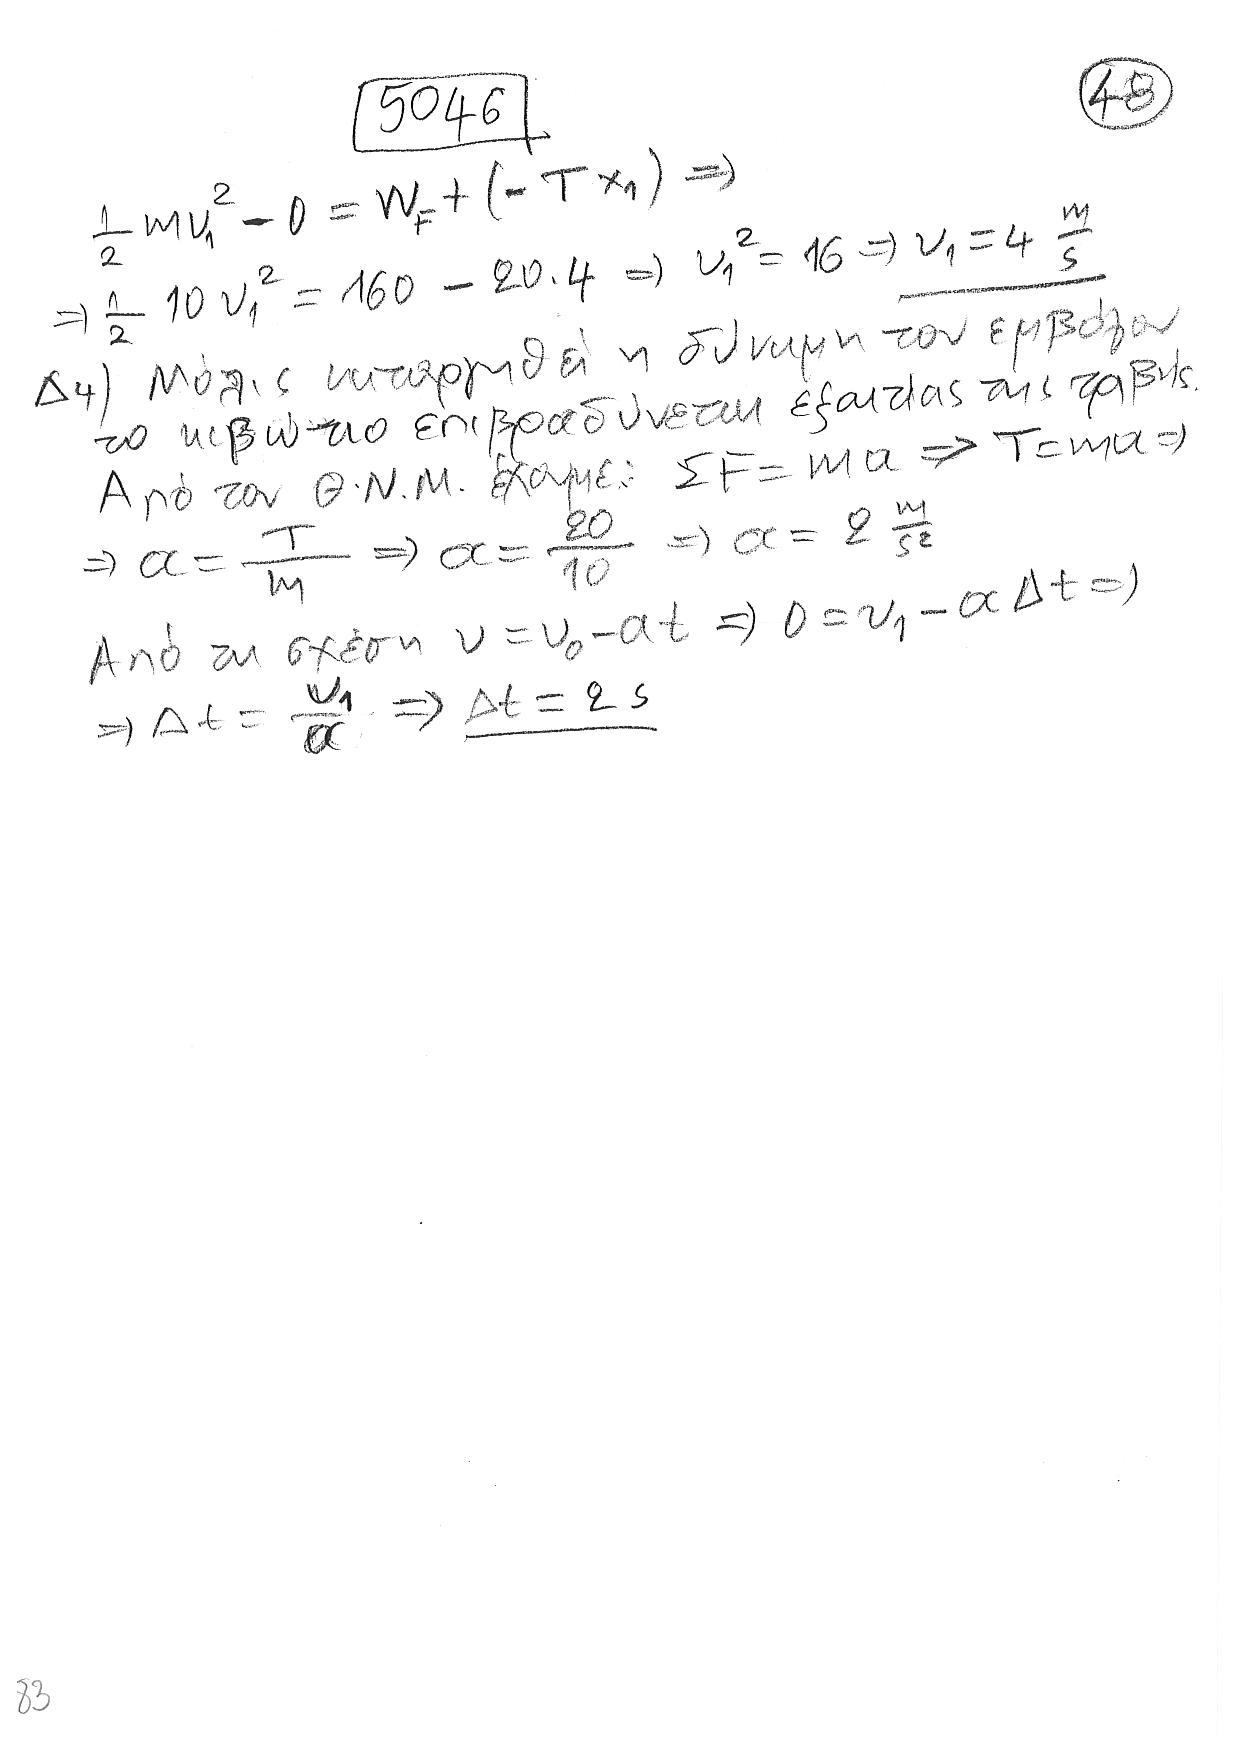 5046
48
1/2 mυ₁² - 0 = W_F + (-T x₁) ⇒
⇒ 1/2 10 υ₁² = 160 - 20.4 ⇒ υ₁² = 16 ⇒ υ₁ = 4 m/s
Δ4) Μόλις καταργηθεί η δύναμη του εμβόλου
το κιβώτιο επιβραδύνεται εξαιτίας της τριβής.
Από τον Θ.Ν.Μ. έχουμε: ΣF = ma ⇒ T = ma ⇒
⇒ α = T/m ⇒ α = 20/10 ⇒ α = 2 m/s²
Από τη σχέση υ = υ₀ - αt ⇒ 0 = υ₁ - α Δt ⇒
⇒ Δt = υ₁/α ⇒ Δt = 2 s
83